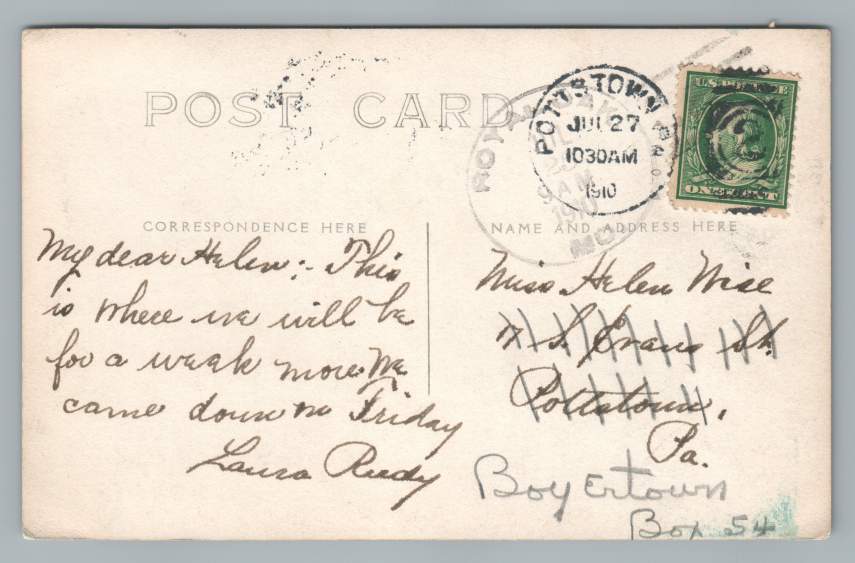 POST CARD
POTTSTOWN
JUL 27
1030AM
1910
ROYAL OAK
AM
1910
MD
U.S. POSTAGE
ONE CENT
CORRESPONDENCE HERE
NAME AND ADDRESS HERE
My dear Helen:- This
is where we will be
for a week more. We
came down on Friday
Laura Reedy
Miss Helen Wise
17 S. Evans St.
Pottstown,
Pa.
Boyertown
Box 54